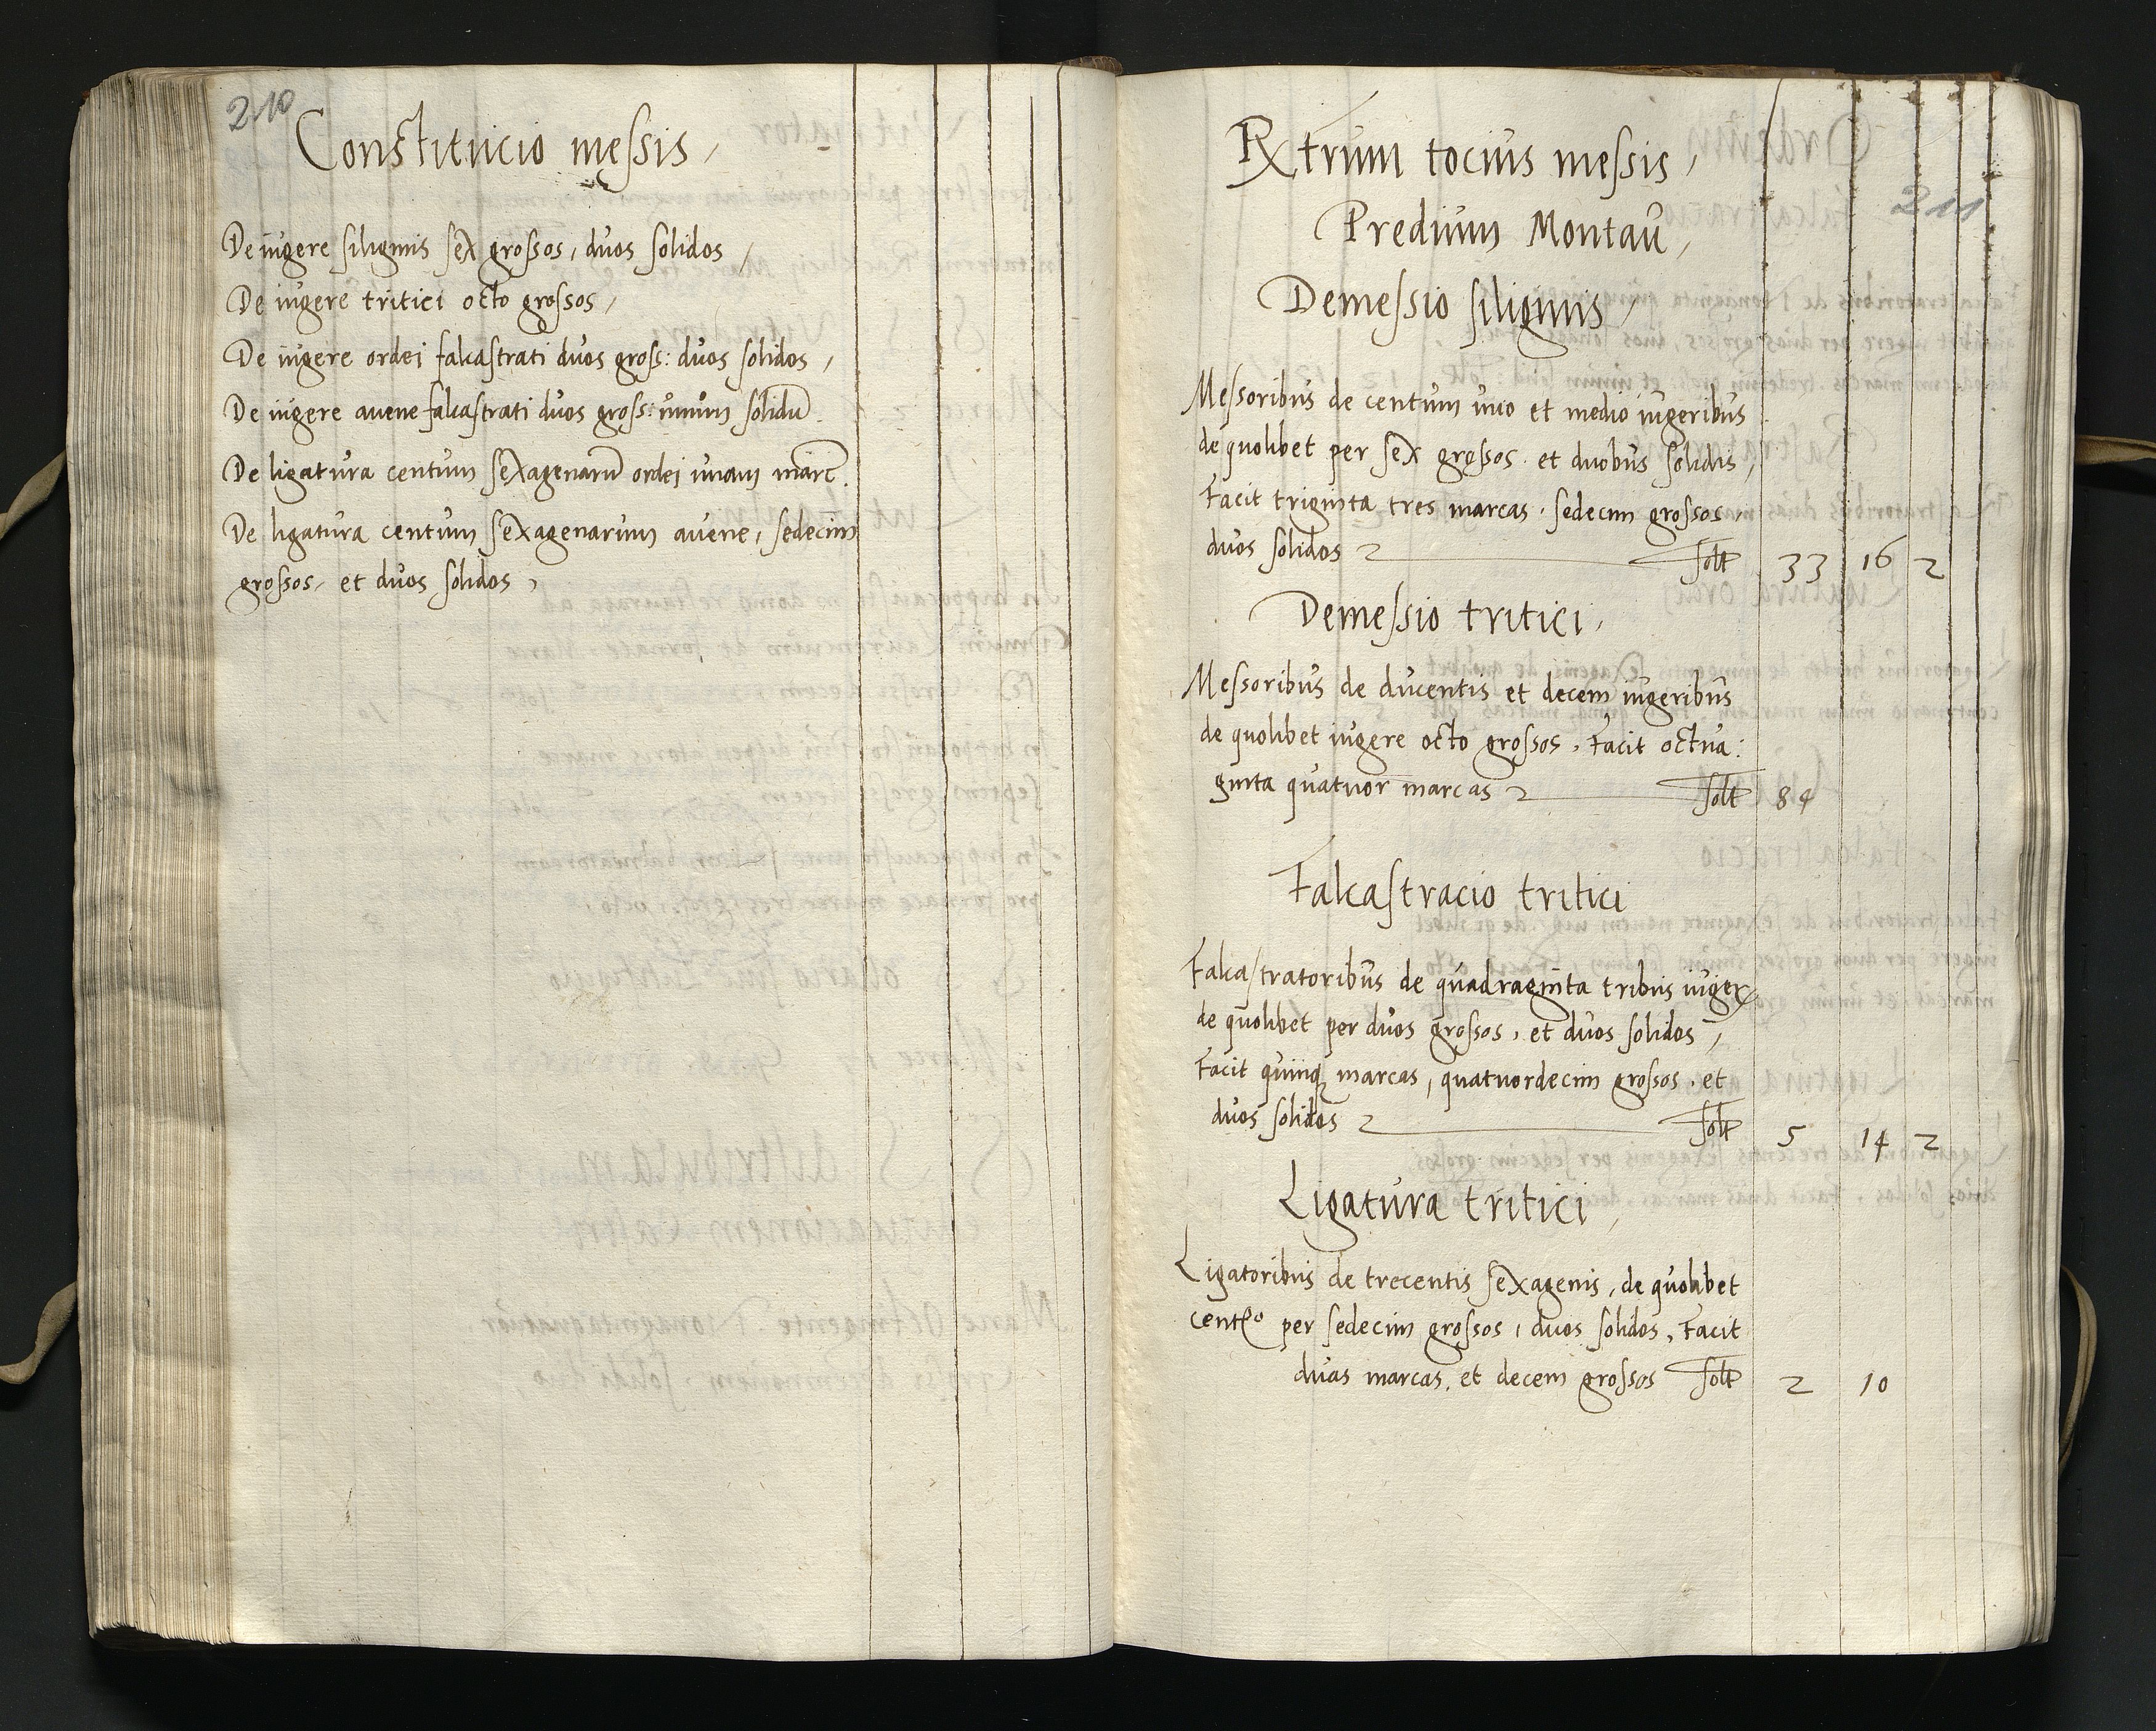 210
Constitucio messis,
De iugere siliginis sex grossos, duos solidos,
De iugere tritici octo grossos,
De iugere ordei falcastrati duos gross: duos solidos,
De iugere avene falcastrati duos gross: unum solidū.
De ligatura centum sexagenarū ordei unam marc.
De ligatura centum sexagenarum avene, sedecim
grossos, et duos solidos,
Rxtrum tocius messis,
211
Predium Montau,
Demessio siliginis,
Messoribus de centum uno et medio iugeribus
de quolibet per sex grossos et duobus solidis,
Facit triginta tres marcas, sedecim grossos,
duos solidos solt 33 16 2
Demessio tritici,
Messoribus de ducentis et decem iugeribus
de quolibet iugere octo grossos, Facit octua:
ginta quatuor marcas solt 84
Falcastracio tritici
Falcastratoribus de quadraginta tribus iuger
de quolibet per duos grossos, et duos solidos,
Facit quinq marcas, quatuordecim grossos, et
duos solidos solt 5 14 2
Ligatura tritici,
Ligatoribus de trecentis sexagenis, de quolibet
cent per sedecim grossos, duos solidos, Facit
duas marcas, et decem grossos solt 2 10